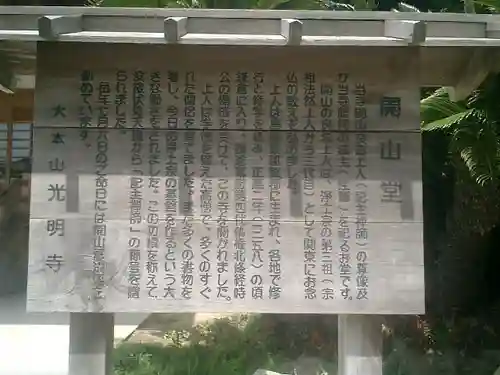 開山堂
当寺開山良忠上人(記主禅師)の尊像及
び当寺歴代の法主(住職)を祀るお堂です。
開山の良忠上人は、浄土宗の第三祖(宗
祖法然上人から三代目)として関東にお念
仏の教えを弘めました。
上人は
に生まれ、各地で修
行と修学を積み、正嘉二年(一二五八)の頃
鎌倉に入り、
執権北条経時
公の帰依をうけて、この寺を開かれました。
上人は学徳を兼ねた高僧で、多くのすぐ
れた門弟を育てました。また多くの書物を
著し、今日の浄土宗の基礎を作るという大
きな働きをされました。この功績を称えて、
天皇から「記主禅師」の諡号を
られました。
毎年七月六日の
には開山忌法要を
勤めています。
大本山光明寺